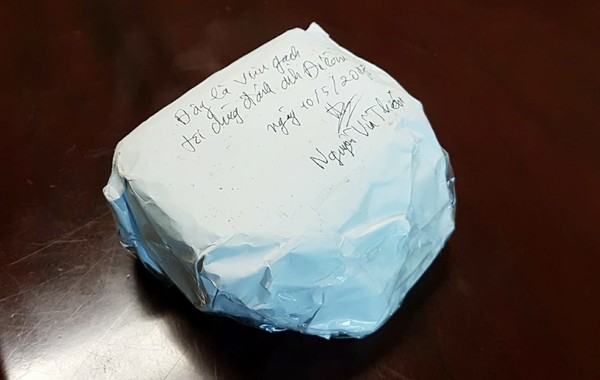 Đây là viên gạch
tôi dùng đánh anh Điềm
ngày 10/5/20
Nguyễn Vũ Thiên